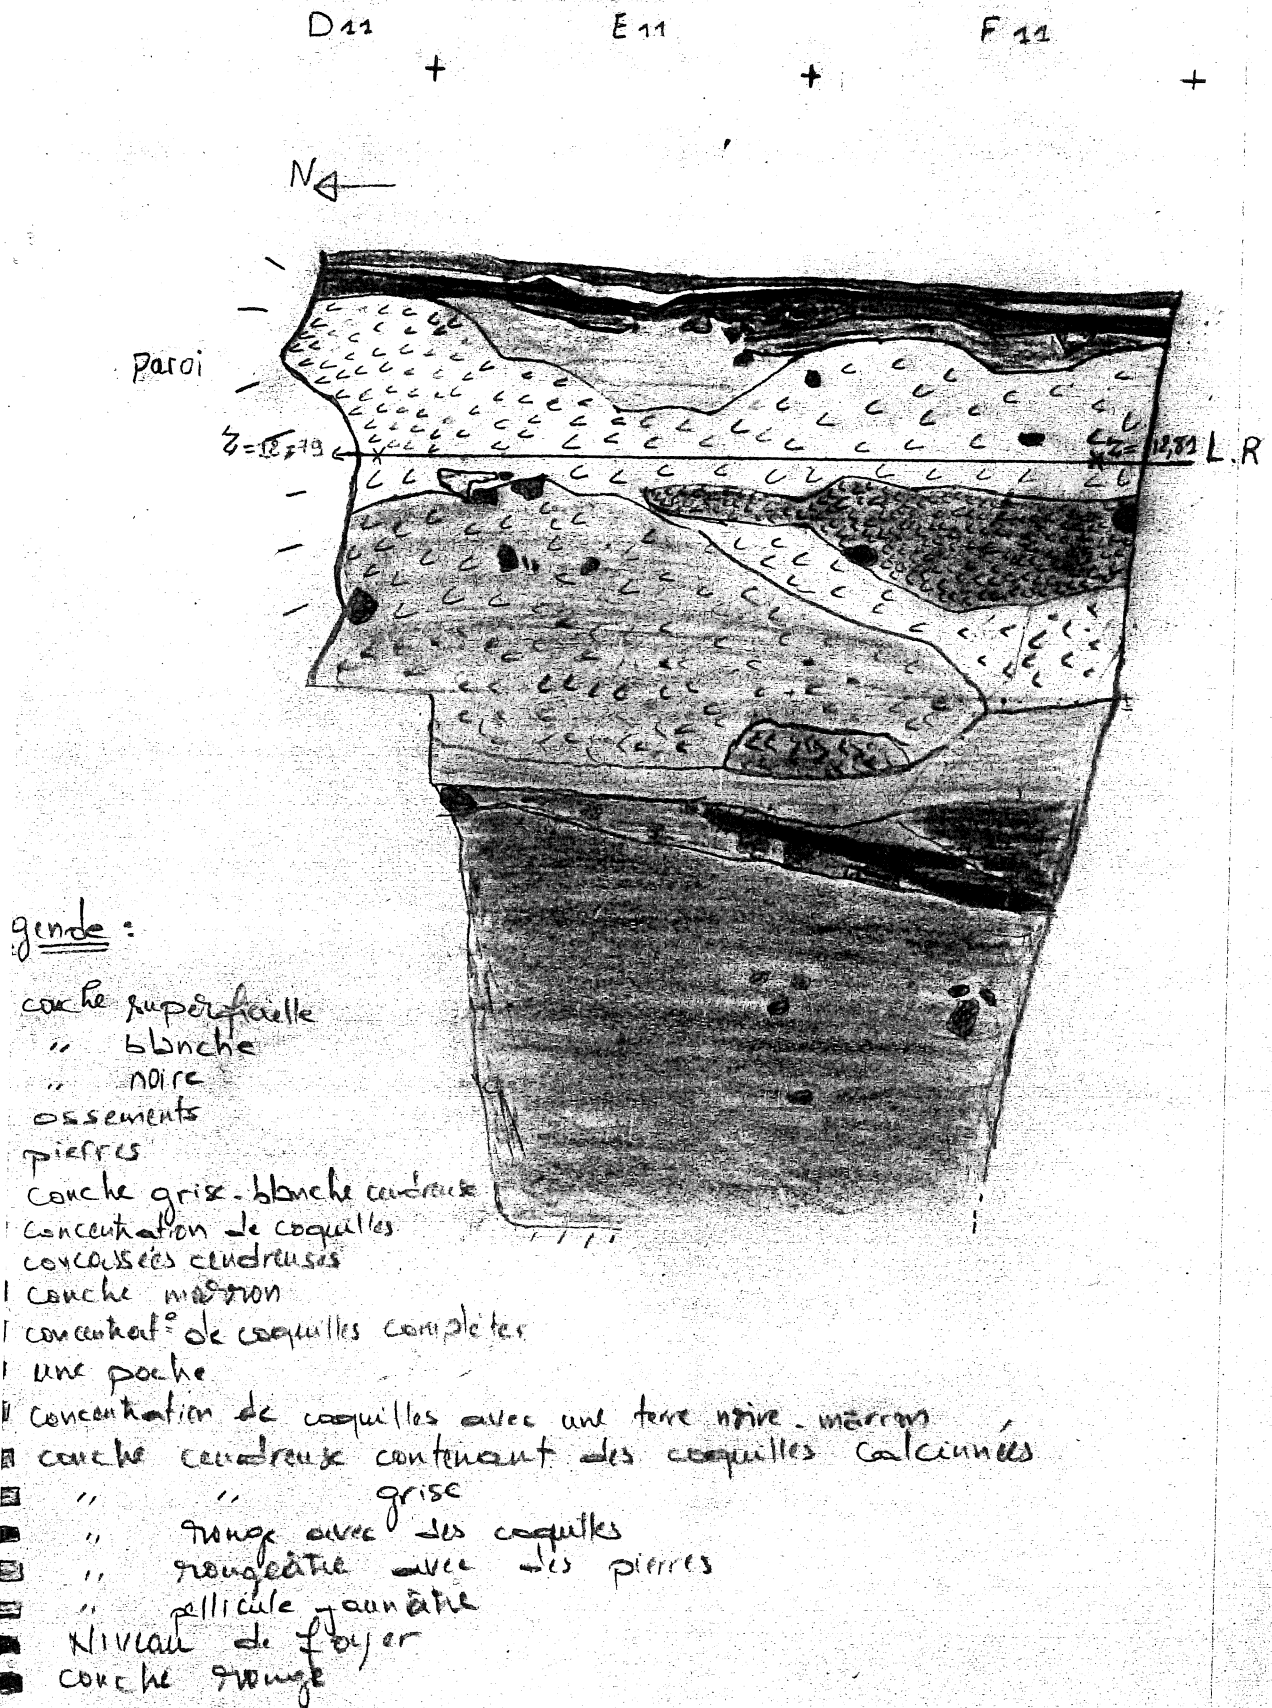 D11 E11 F11
N
paroi
Z=12,79
Z=12,81 L.R
gende :
couche superficielle
" blanche
" noire
ossements
pierres
couche grise-blanche cendreuse
concentration de coquilles
concassées cendreuses
couche marron
concentrat° de coquilles complètes
une poche
concentration de coquilles avec une terre noire-marron
couche cendreuse contenant des coquilles calcinnées
" " grise
" rouge avec des coquilles
" rougeâtre avec des pierres
" pellicule jaunâtre
Niveau de foyer
couche rouge